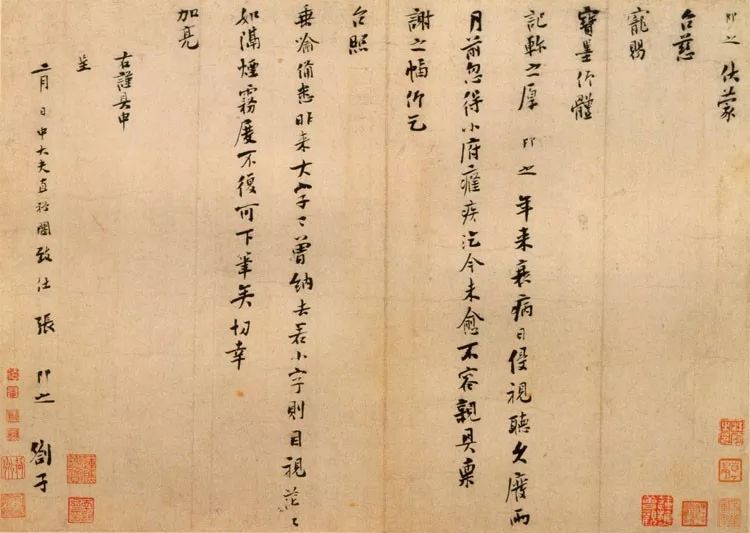 即之伏蒙
台慈
寵賜
寶墨仰體
記軫之厚即之年来衰病日侵視聽久廢兩
月前忽得小府癰疾迄今未愈不容親具稟
謝之幅仰乞
台照
垂喻備悉昨来大字已曾納去若小字則目視茫茫
如滿煙霧廢不復可下筆矣切幸
加亮
右謹具申
呈
二月日中大夫直祕閣致仕張即之劄子